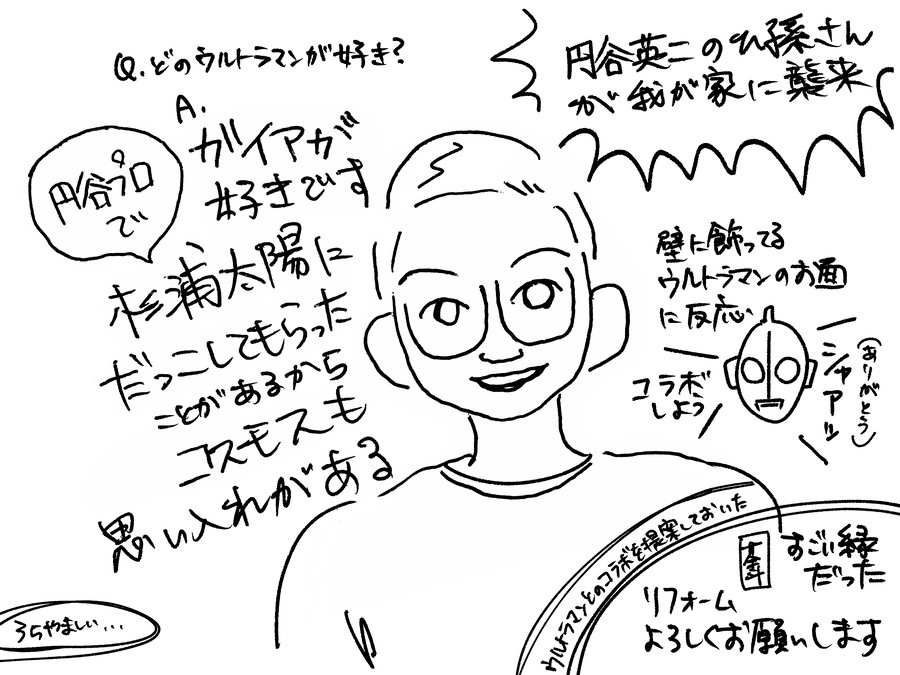 Q.どのウルトラマンが好き?
A.
ガイアが
好きです
円谷プロ
で
杉浦太陽に
だっこしてもらった
ことがあるから
コスモスも
思い入れがある
うらやましい...
円谷英二のひ孫さん
が我が家に襲来
壁に飾ってる
ウルトラマンのお面
に反応
コラボ
しよう
シャアッ
(ありがとう)
ウルトラマンとのコラボを提案しておいた
すごい縁
だった
リフォーム
よろしくお願いします